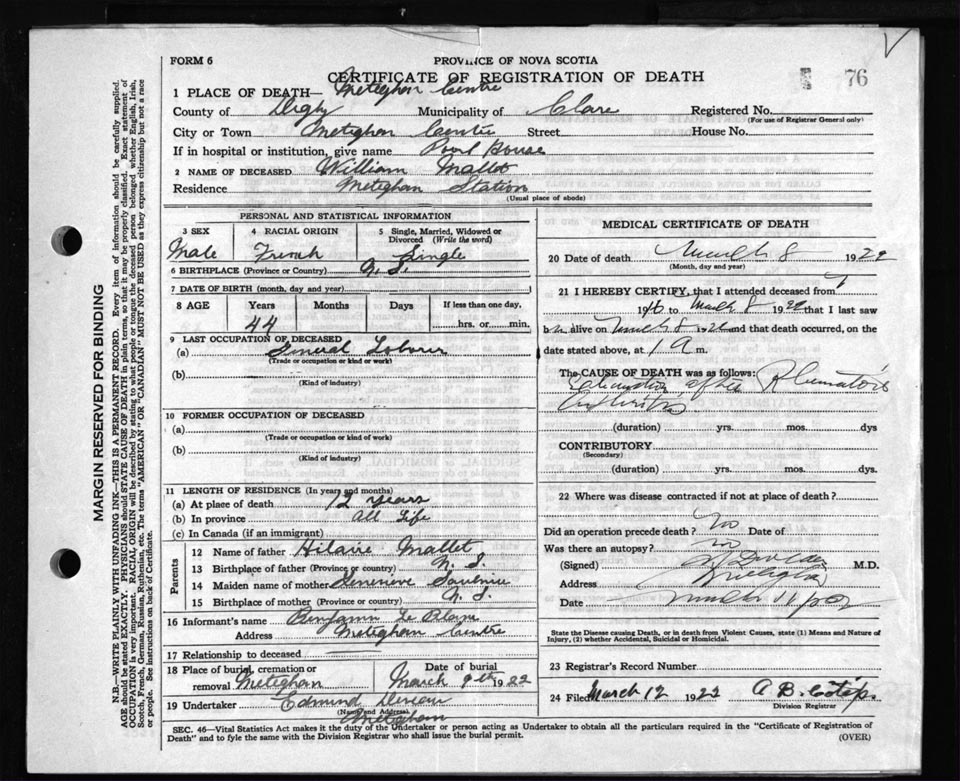 FORM 6
PROVINCE OF NOVA SCOTIA
CERTIFICATE OF REGISTRATION OF DEATH
76
1 PLACE OF DEATH— Meteghan Centre
County of Digby Municipality of Clare Registered No.
(For use of Registrar General only)
City or Town Meteghan Centre Street House No.
If in hospital or institution, give name Poor House
2 NAME OF DECEASED William Mallet
Residence Meteghan Station
(Usual place of abode)
PERSONAL AND STATISTICAL INFORMATION
3 SEX 4 RACIAL ORIGIN 5 Single, Married, Widowed or Divorced (Write the word)
Male French Single
6 BIRTHPLACE (Province or Country) N. S.
7 DATE OF BIRTH (month, day and year)
8 AGE Years Months Days If less than one day,
44 hrs. or min.
9 LAST OCCUPATION OF DECEASED
(a) General Laborer
(Trade or occupation or kind of work)
(b)
(Kind of industry)
10 FORMER OCCUPATION OF DECEASED
(a)
(Trade or occupation or kind of work)
(b)
(Kind of industry)
11 LENGTH OF RESIDENCE (In years and months)
(a) At place of death 12 years
(b) In province all life
(c) In Canada (if an immigrant)
Parents
12 Name of father Hilaire Mallet
13 Birthplace of father (Province or country) N. S.
14 Maiden name of mother Genevieve
15 Birthplace of mother (Province or country) N. S.
16 Informant's name Benjamin Le Blanc
Address Meteghan Centre
17 Relationship to deceased
18 Place of burial, cremation or removal Meteghan
Date of burial March 9th 1922
19 Undertaker Edmund
(Name and Address)
Meteghan
MEDICAL CERTIFICATE OF DEATH
20 Date of death March 8 1922
(Month, day and year)
21 I HEREBY CERTIFY, that I attended deceased from
to March 8 1922 that I last saw
h alive on March 8 1922 and that death occurred, on
date stated above, at 1 a m.
The CAUSE OF DEATH was as follows:
after Rheumatoid
Arthritis
(duration) yrs. mos. dys
CONTRIBUTORY
(Secondary)
(duration) yrs. mos. dys.
22 Where was disease contracted if not at place of death?
Did an operation precede death? No Date of
Was there an autopsy? no
(Signed) M.D.
Address Meteghan
Date March 11
State the Disease causing Death, or in death from Violent Causes, state (1) Means and Nature of
Injury, (2) whether Accidental, Suicidal or Homicidal.
23 Registrar's Record Number
24 Filed March 12 1922 A B
Division Registrar
SEC. 46—Vital Statistics Act makes it the duty of the Undertaker or person acting as Undertaker to obtain all the particulars required in the "Certificate of Registration of
Death" and to fyle the same with the Division Registrar who shall issue the burial permit.
(OVER)
MARGIN RESERVED FOR BINDING
N.B.—WRITE PLAINLY WITH UNFADING INK—THIS IS A PERMANENT RECORD. Every item of information should be carefully supplied.
AGE should be stated EXACTLY. PHYSICIANS should STATE CAUSE OF DEATH in plain terms, so that it may be properly classified. Exact statement of
OCCUPATION is very important. RACIAL ORIGIN will be described by stating to what people or tongue the deceased person belonged whether English, Irish,
Scotch, French, German, Russian, Ruthenian, etc. The terms "AMERICAN" or "CANADIAN" MUST NOT BE USED as they express citizenship but not a race
or people. See instructions on back of Certificate.